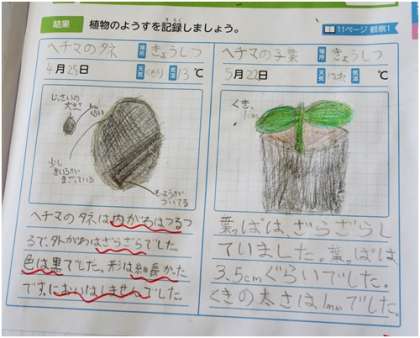 結果 植物のようすを記録しましょう。
11ページ 観察1
ヘチマのタネ 場所 きょうしつ
4月25日 天気 くもり 気温 13℃
じっさいの
大きさ
ヘチマのタネは内がわはつるつ
るで、外がわはざらざらでした。
色は黒でした。形は細長かった
です。においはしませんでした。
ヘチマの子葉 場所 きょうしつ
5月22日 天気 気温 ℃
くき
葉っぱは、ざらざらし
ていました。葉っぱは
3.5cmぐらいでした。
くきの太さは、1mmでした。